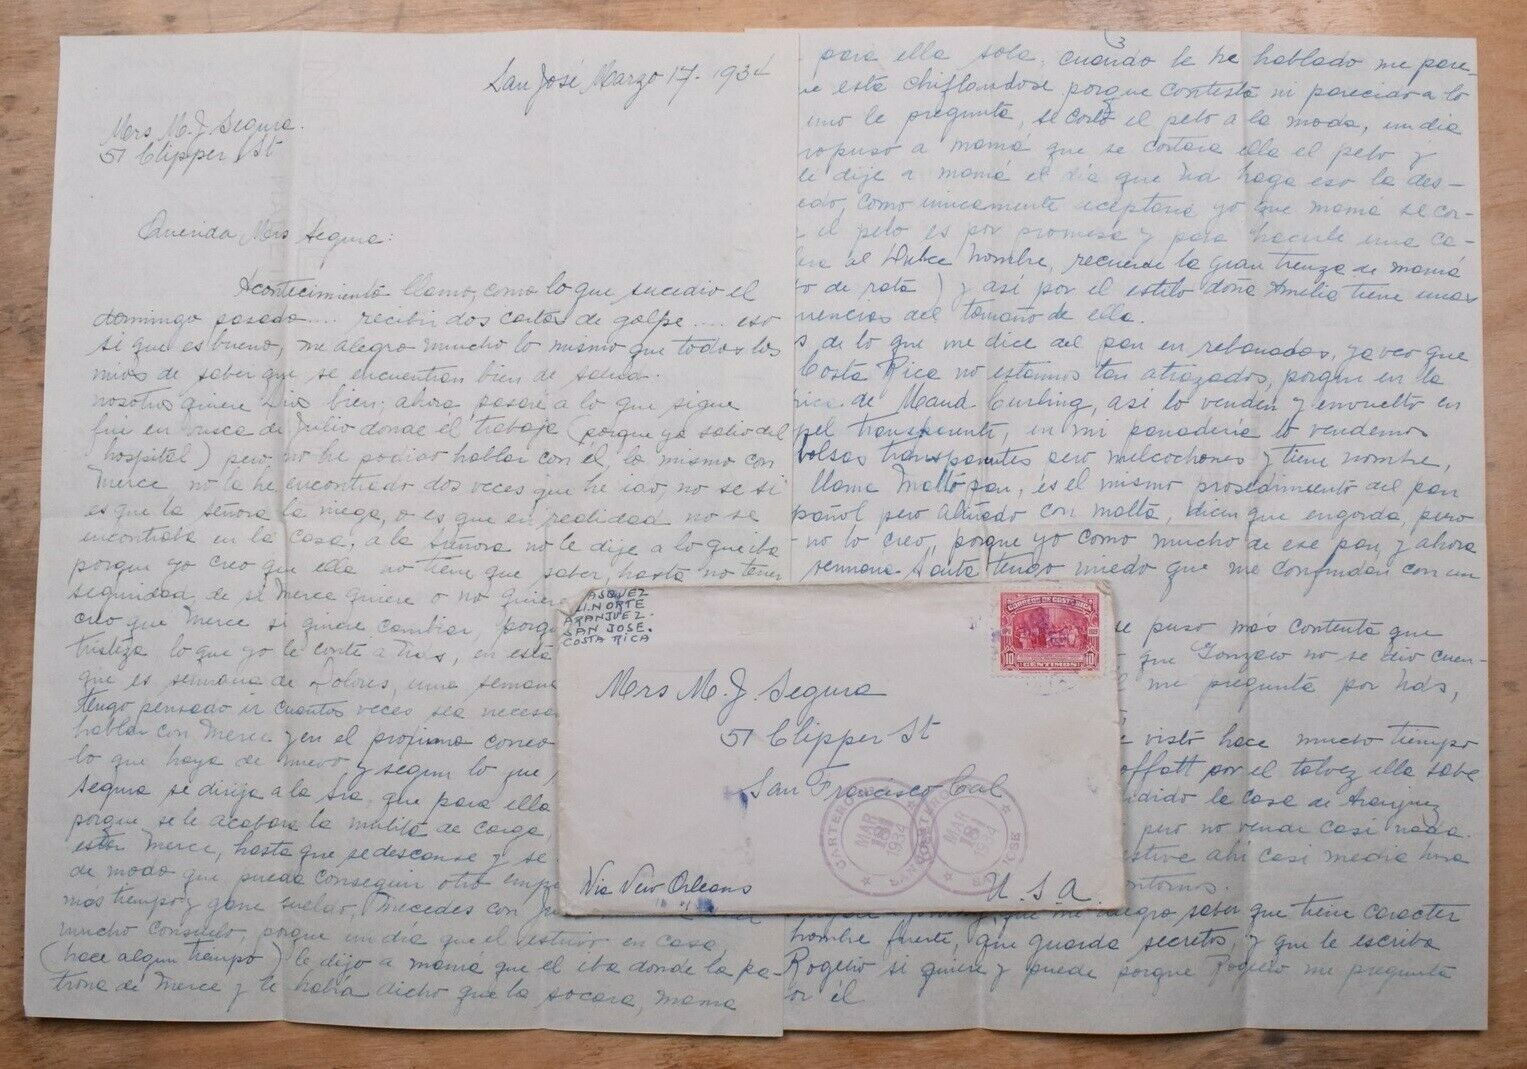 San José Marzo 17-1934
Mers M. J. Segura.
51 Clipper St
Querida Mers Segura:
Acontecimiento llamo, como lo que sucedio el
domingo pasado.... recibir dos cartas de golpe.... eso
si que es bueno, me alegro mucho lo mismo que todos los
mios de saber que se encuentran bien de salud.
nosotros bien; ahora pasaré a lo que sigue
fui en busca de Julio donde el trabaja (porque ya salio del
hospital) pero no he podido hablar con él, lo mismo con
Merce, no la he encontrado dos veces que he ido, no se si
es que la señora la niega, o es que en realidad no se
encontraba en la casa, a la señora no le dije a lo que iba
porque yo creo que ella no tiene que saber, hasta no tener
seguridad, de si Merce quiere o no quiere
creo que Merce si quiere cambiar, porq
tristeza lo que yo le conte a Uds, en esta
que es semana de Dolores, una semana
tengo pensado ir cuantas veces sea necesa
hablar con Merce y en el proximo correo
lo que haya de nuevo y segun lo que,
Segura se dirija a la Sra, que para ella
porque se le acabara la mulita de carga,
ester Merce, hasta que se descanse y se
de modo que pueda conseguir otro emp
más tiempo y gane sueldo, Mecedes con Ju
mucho consuelo, porque un dia que el estuvo en casa,
(hace algun tiempo) le dijo a mamá que el iba donde la pa-
trona de Merce y le habia dicho que la socara, mama
3
para ella sola, cuando le he hablado me pare-
e está chiflandose porque contesta ni parecido a lo
uno le pregunta, se cortó el pelo a la moda, un dia
ropuso a mamá que se cortara ella el pelo y
le dije a mamá el dia que Ud haga eso la des-
como unicamente aceptaria yo que mamá se cor-
el pelo es por promesa y para hacerle una ca-
al Dulce Nombre, recuerde la gran trenza de mamá
o de rata) y así por el estilo doña Amelia tiene unas
uencias del tamaño de ella.
s de lo que me dice del pan en rebanadas, ya veo que
Costa Rica no estamos tan atrazados, porque en la
rica de Maud Curling, así lo venden y envuelto en
pel transparente, en mi panaderia lo vendemos
bolsas transparentes pero melcochones y tiene nombre,
llama Malto pan, es el mismo prosedimiento del pan
pañol pero aliñado con malta, dicen que engorda, pero
no lo creo, porque yo como mucho de ese pan, y ahora
semana Santa tengo miedo que me confundan con un
se puso mas contenta que
que Gonzalo no se dio cuen-
me pregunta por Uds,
e visto hace mucho tiempo
offatt por el talvez ella sabe
dido la casa de Aranjuez
pero no vende casi nada.
estive ahi casi media hora
ontornos.
me alegro saber que tiene caracter
hombre fuerte, que guarda secretos, y que le escriba
Rogelio si quiere y puede porque Rogelio me pregunta
or él
ASQUEZ
NORTE
ARANJUEZ.
SAN JOSE.
COSTA RICA
CORREOS DE COSTA RICA
10 10
CENTIMOS
Mers M. J. Segura
51 Clipper St
San Francisco Cal
Via New Orleans
U. S. A.
CARTERO
MAR
18
1934
SAN JOSE
CARTERO
MAR
18
1934
SAN JOSE